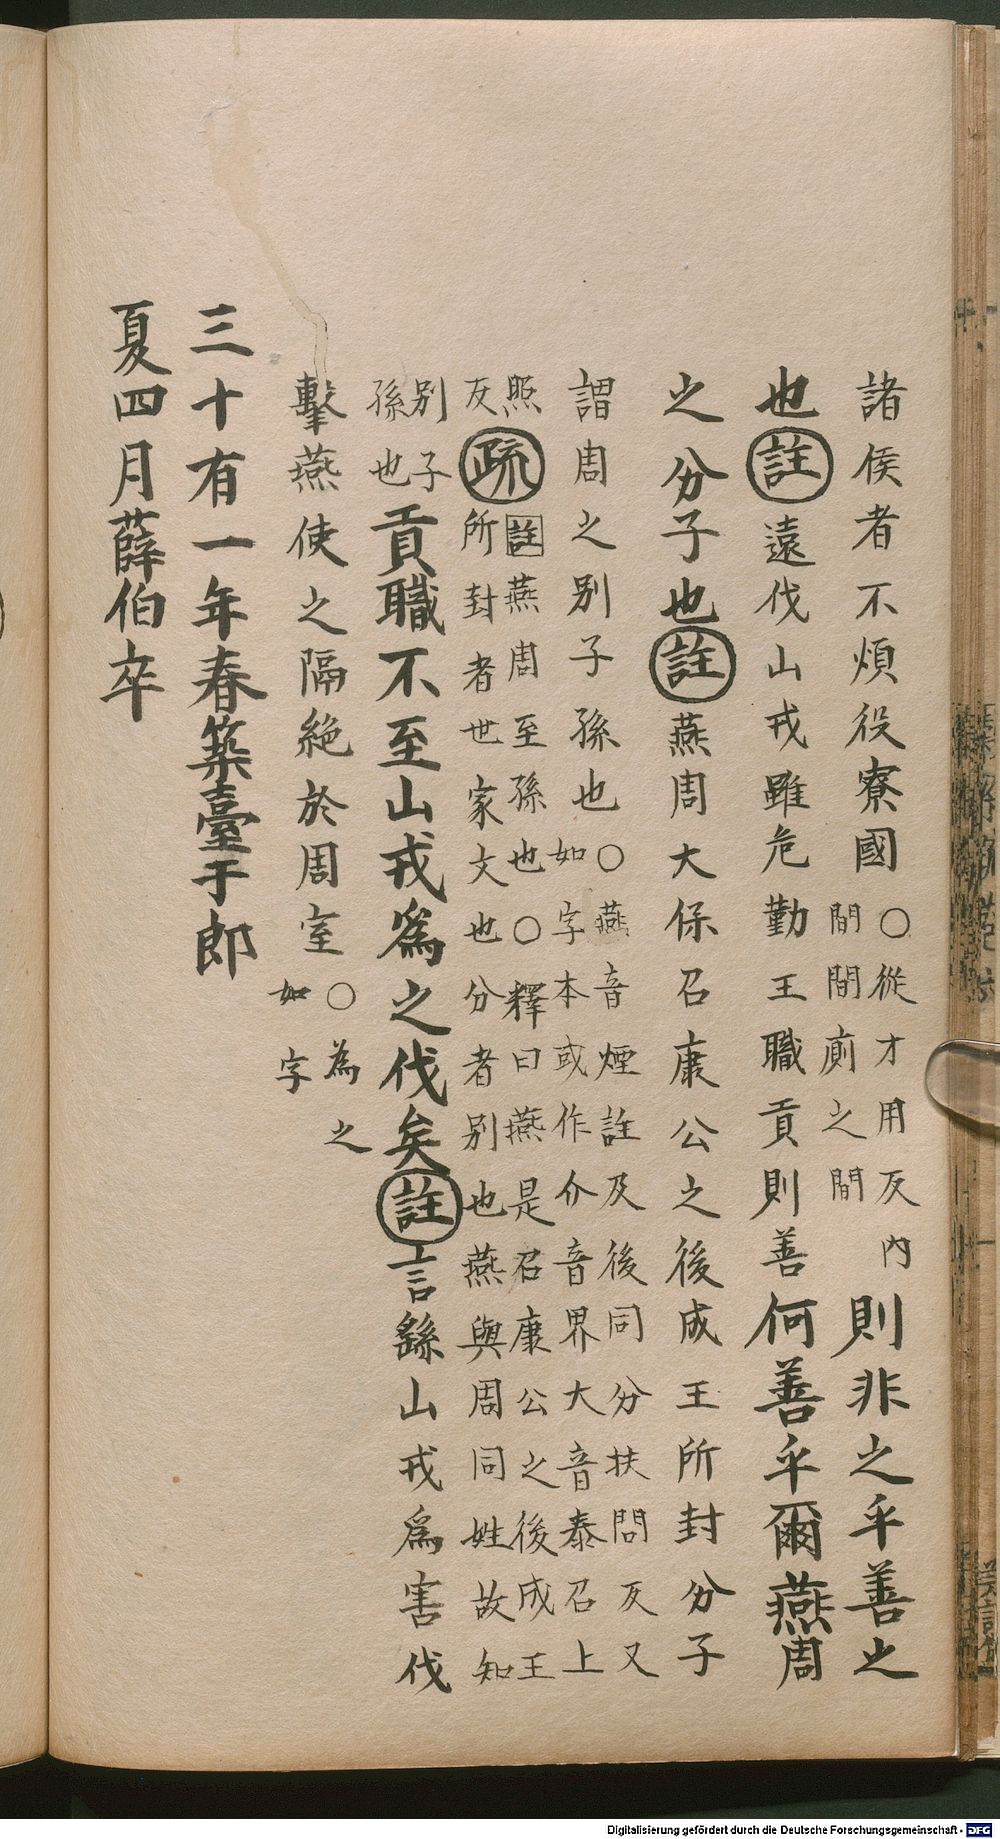 諸侯者不煩役寮國○從才用反內間間廁之間則非之乎善之
也註遠伐山戎雖危勤王職貢則善何善乎爾燕周
之分子也註燕周大保召康公之後成王所封分子
謂周之別子孫也○燕音煙註及後同分扶問反又如字本或作介音界大音泰召上
照反疏註燕周至孫也○釋曰燕是召康公之後成王所封者世家文也分者別也燕與周同姓故知
別子孫也貢職不至山戎爲之伐矣註言繇山戎爲害伐
擊燕使之隔絶於周室○為之如字
三十有一年春築臺于郎
夏四月薛伯卒
Digitalisierung gefördert durch die Deutsche Forschungsgemeinschaft - DFG